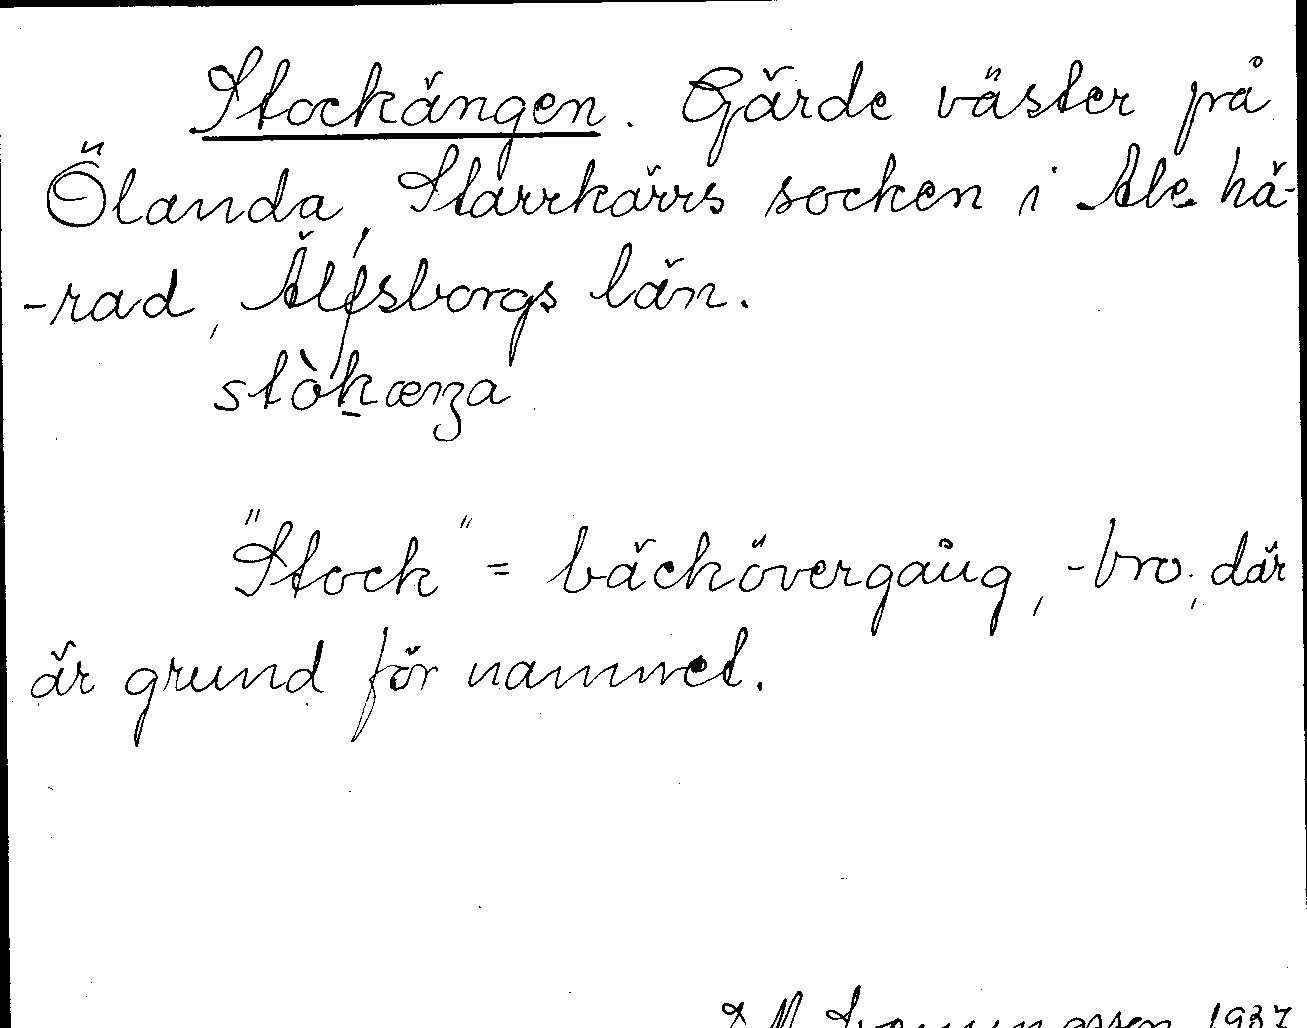 Stockängen. Gärde väster på
Ölanda, Starrkärrs socken i Ale hä-
-rad, Älfsborgs län.
stòkænga
"Stock" = bäckövergång, -bro, där
är grund för namnet.
1937